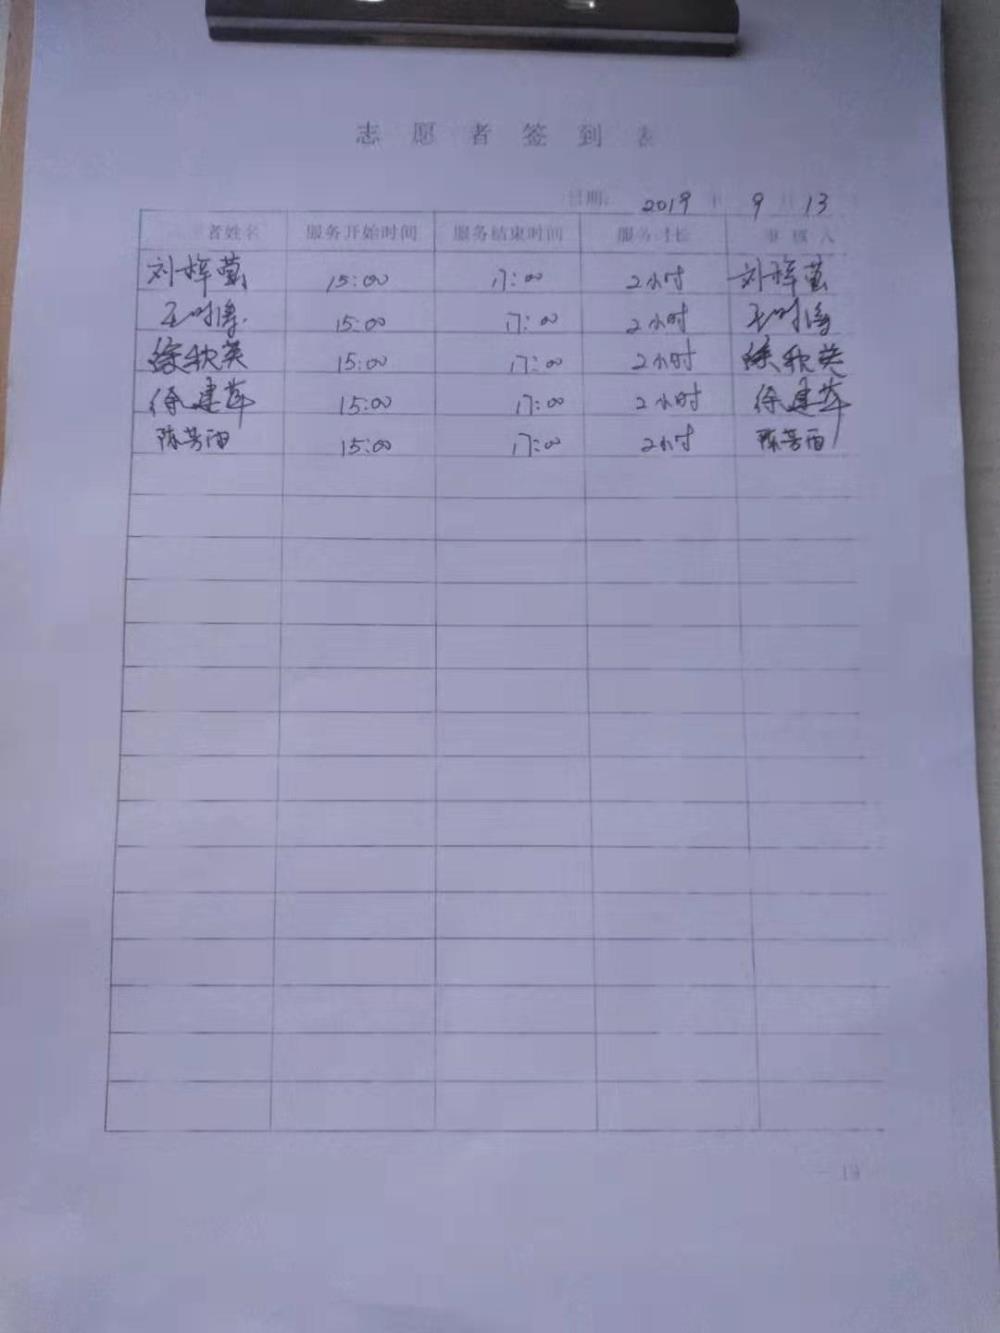 志愿者签到表
日期: 2019 年 9 月 13
者姓名 服务开始时间 服务结束时间 服务时长 审核人
刘梓萤 15:00 17:00 2小时 刘梓萤
王时 15:00 17:00 2小时 王时
徐秋英 15:00 17:00 2小时 徐秋英
徐建萍 15:00 17:00 2小时 徐建萍
陈芳雨 15:00 17:00 2小时 陈芳雨
19